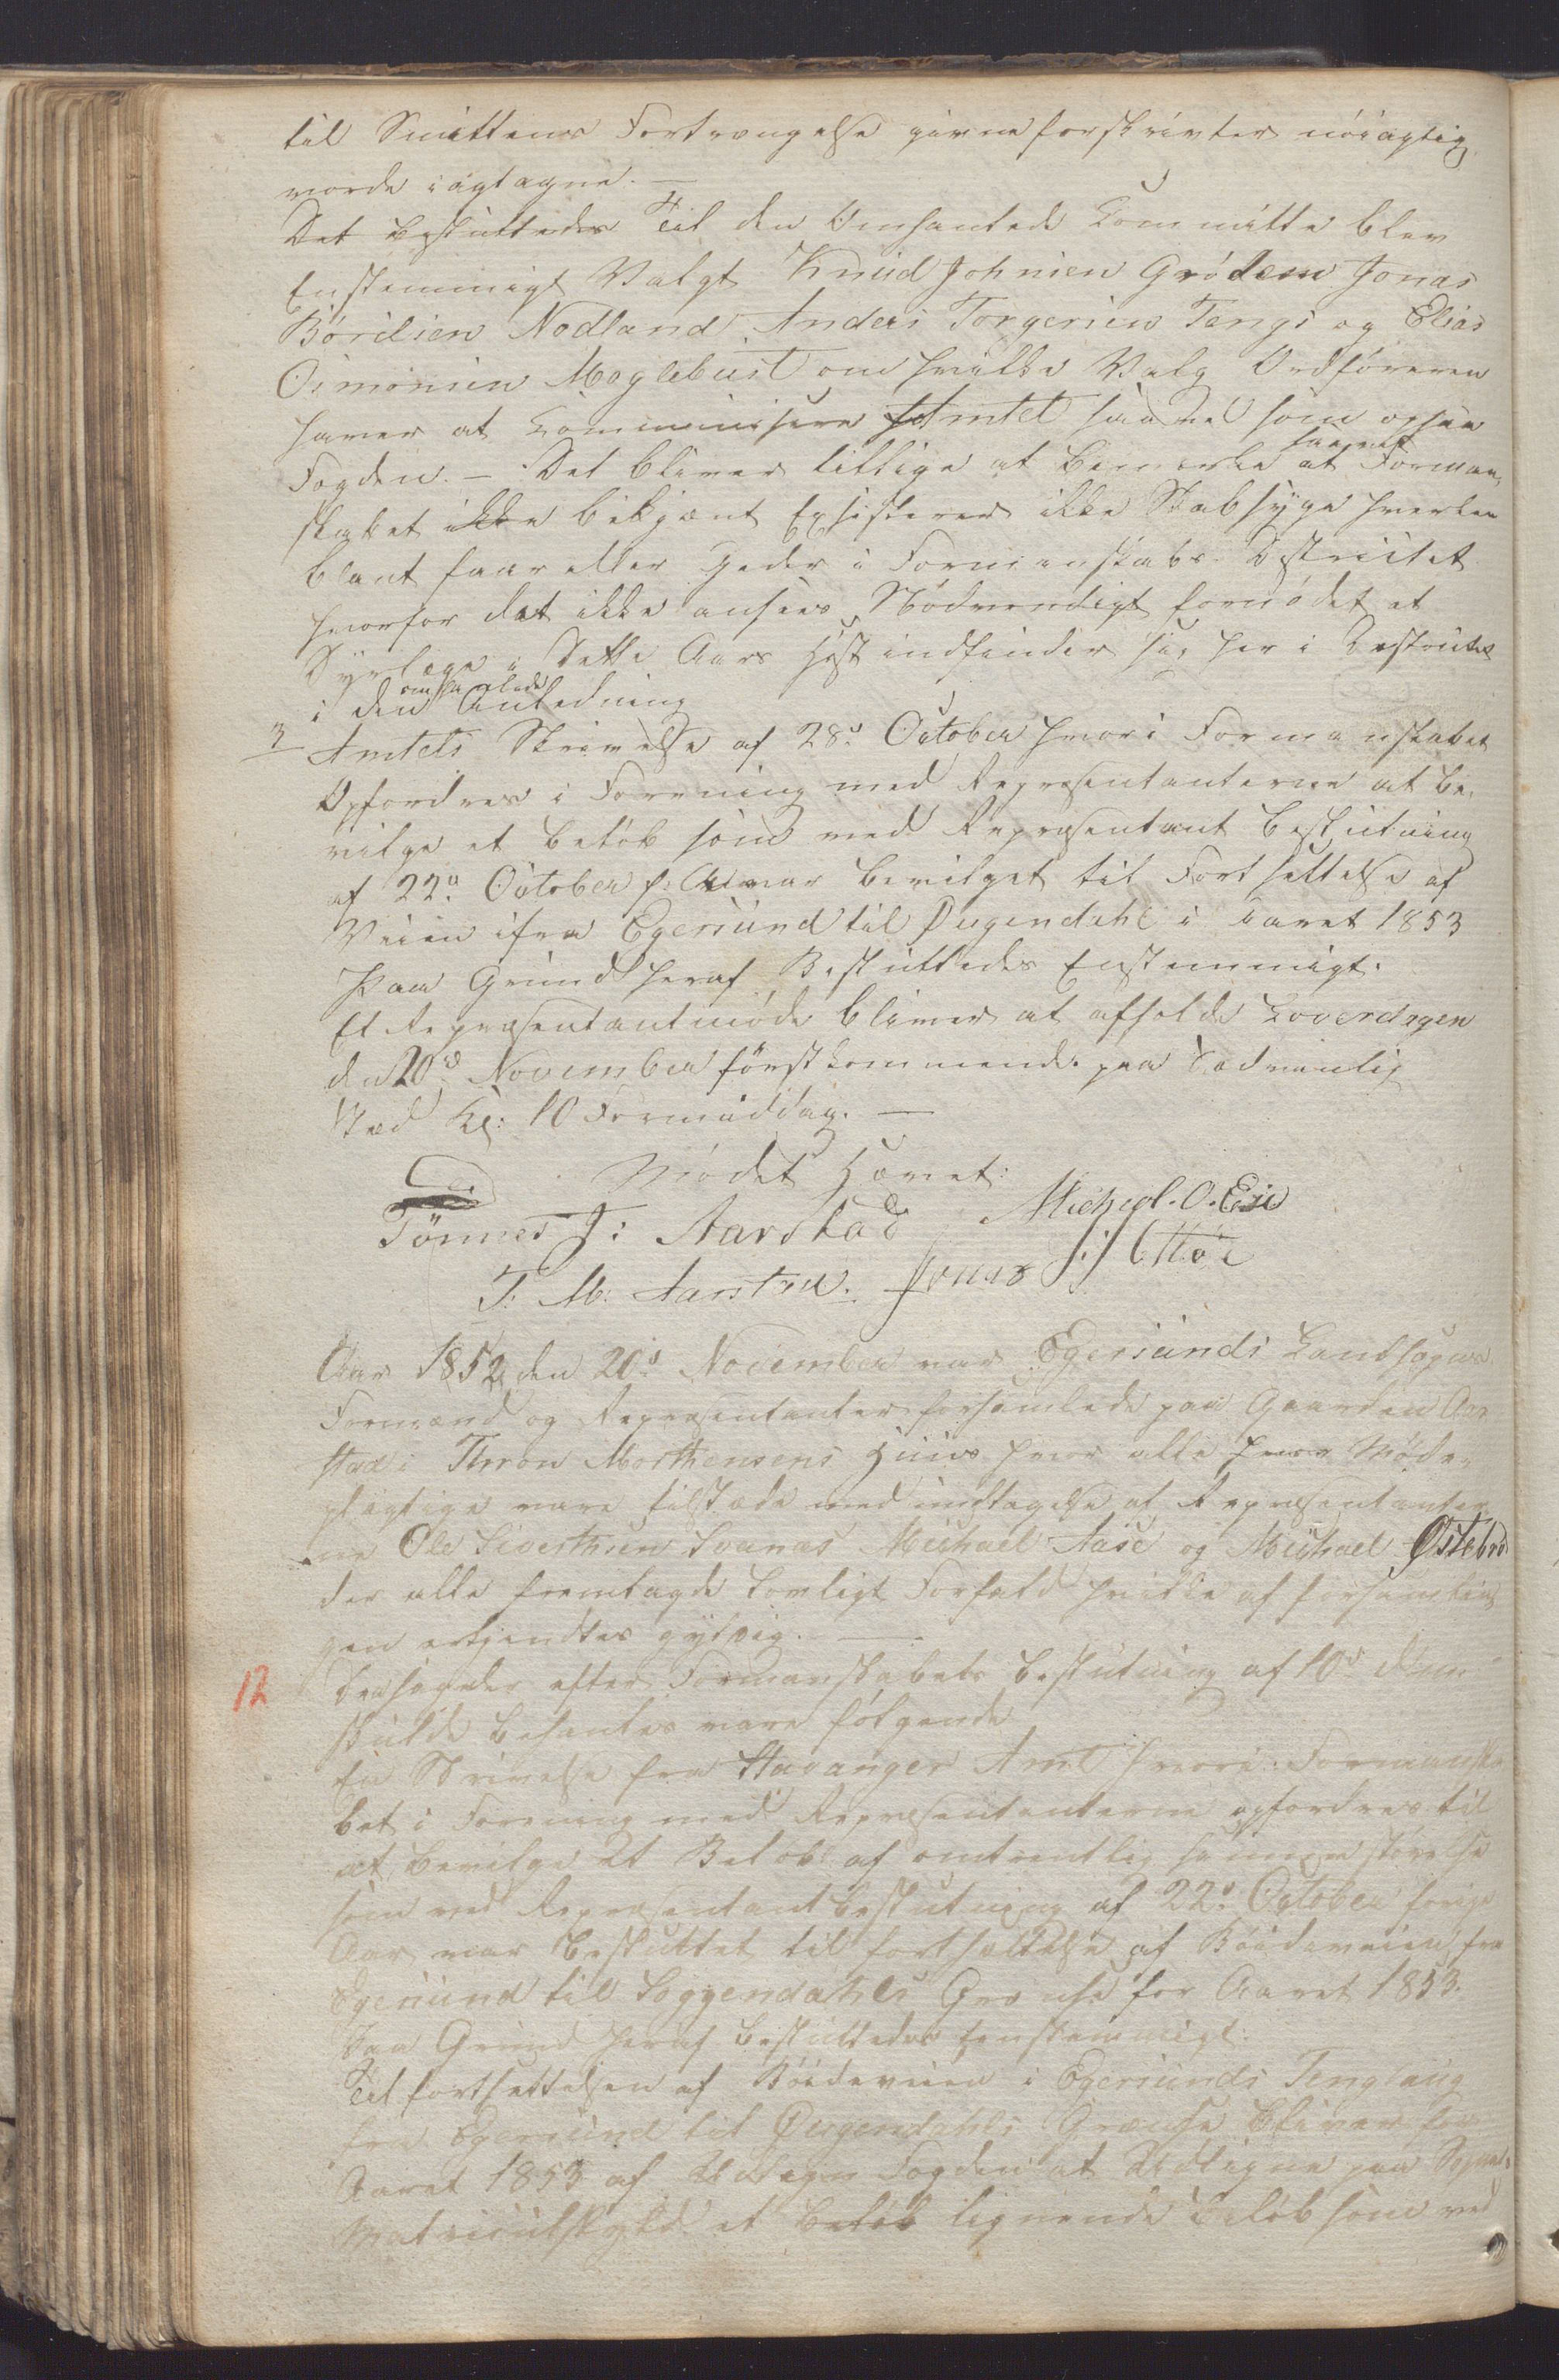 til Smittens Fortrængelse givne forskrivter nöiagtig
vorde iagtagne. —
Det besluttedes Til den Omhantlede Committe blev
Enstemmigt Valgt Knud Johnsen Grödem Jonas
Börilsen Nodland Anders Torgersen Tengs og Elias
Osmonsen Maglebust om hvilke Valg Ordföreren
haver at Communisere Amtet saavel som ogsaa
Fogden. — Det bliver tillige at bemærke at saavit Forman-
skabet ikke bekjent Exsisterer ikke Skabsyge hverken
blant faar eller Geder i Formanskabs Districtet
hvorfor det ikke ansees Nödvendigt fornödet at
Dyrlæge i Dette Aars Höst indfinder sig her i Destrictet
i den omhanlede Anledning
3 Amtets Skrivelse af 28de October hvori Formanskabet
Opfordres i Forening med Representanterne at be-
vilge et belöb som ved Representant beslutning
af 22de October f: A: var bevilget til Forthsettelse af
Veien ifra Egersund til Sogendahl i aaret 1853
Paa Grund heraf Besluttedes Enstemmigt.
Et Representantmöde bliver at afholde Löverdagen
den 20de November förstkommende paa sedvanlig
Sted Kl: 10 Formiddag. —
Mödet Hævet:
Tönnes T: Aarstad Michael. O. Eie
T. M. Aarstad. Jonas
Aar 1852 den 20de November var Egersunds Landsogns
Formænd og Representanter forsamlede paa Gaarden Aar
stad i Thron Morthensens Huus hvor alle hvor Möde-
pligtige vare tilstæde med undtagelse af Representanter
ne Ole Siverthsen Svanas Michael Aase og Michael Östebrö
der alle fremlagde lovligt Forfald hvilke af forsamlin
gen erkjendtes gyldig. —
12 Sagerder efter Formanskabets beslutning af 10de dennes
skulde behanles vare fölgende
En Skrivelse fra Stavanger Amt hvori Formanska
bet i Forening med Representanterne opfordres til
at bevilge et Belöb af omtrentlig samme störelse
som ved Representant beslutning af 22de October forige
Aar var besluttet til forthsættelse af Böideveien fra
Egersund til Soggendahls Grænse for Aaret 1853.
Paa Grund heraf besluttedes Eenstemmigt:
Til forthsettelsen af Böideveien i Egersunds Tinglaug
fra Egersund til Sogendahls Grænse bliver for
Aaret 1853 af Fogden at Udligne paa Sognets
Matriculskyld et Belöb lignende belöb som ved